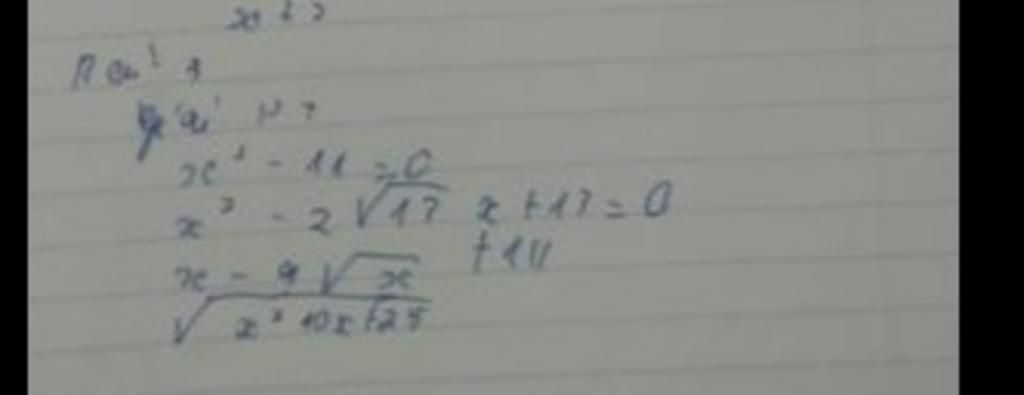 Giải pt
x² - 11 = 0
x² - 2 √17 x + 17 = 0
x - 9 √x + 14
√x² 10x + 25